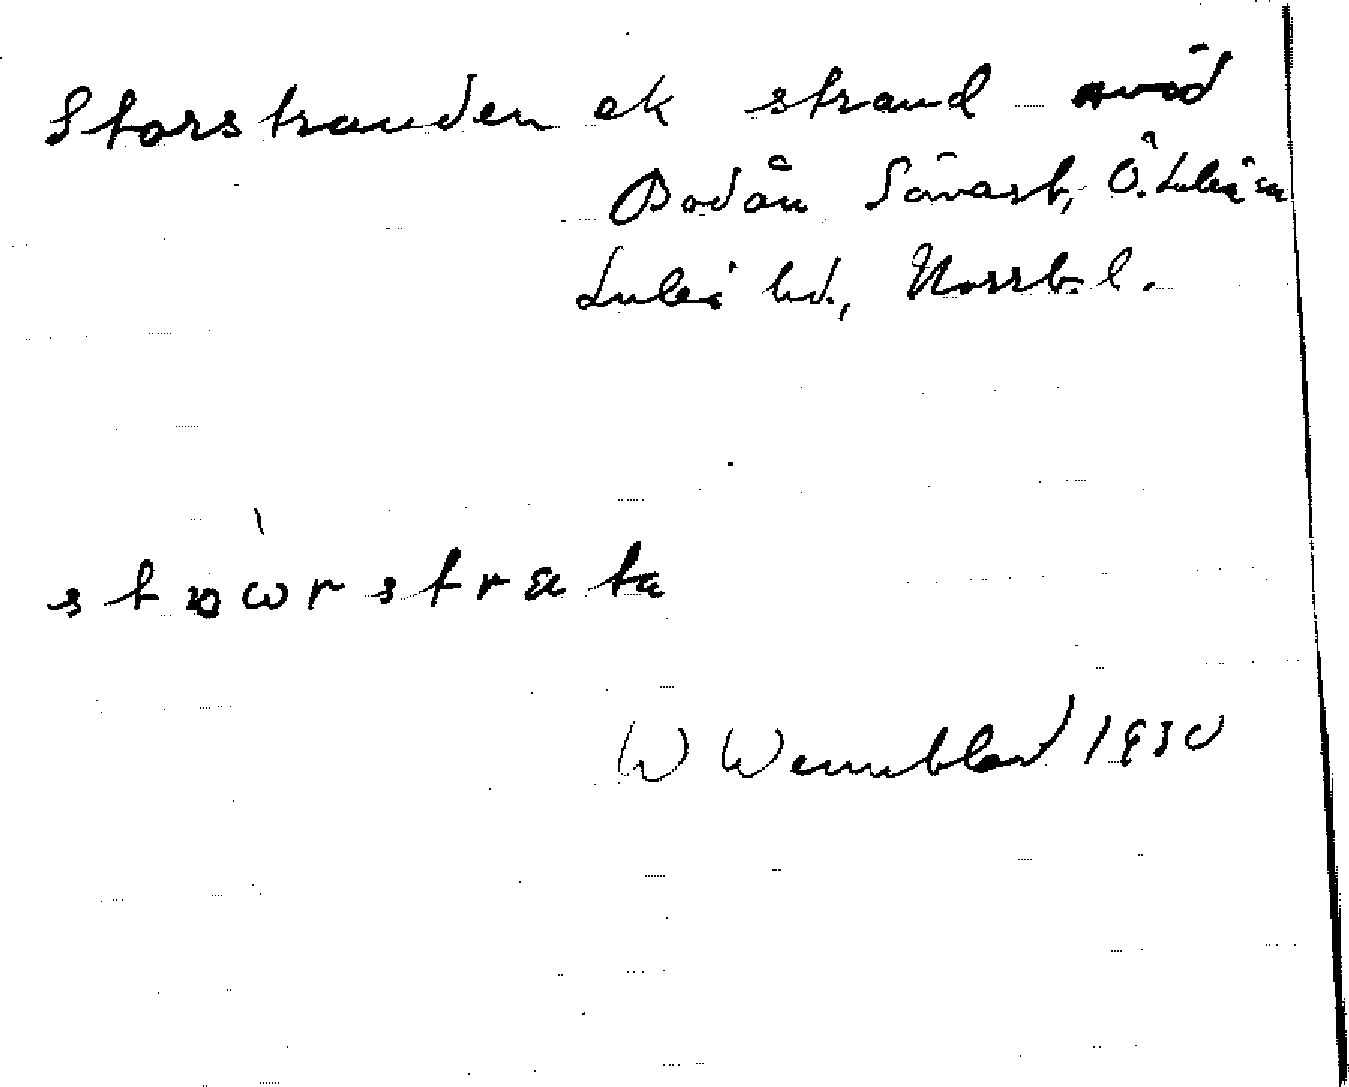 Storstranden ek strand vid
Bodån Sävast, Ö. Luleå sn
Luleå hd., Norrb. l.
stɒ̀ωrstrata
W Wennblad 1930